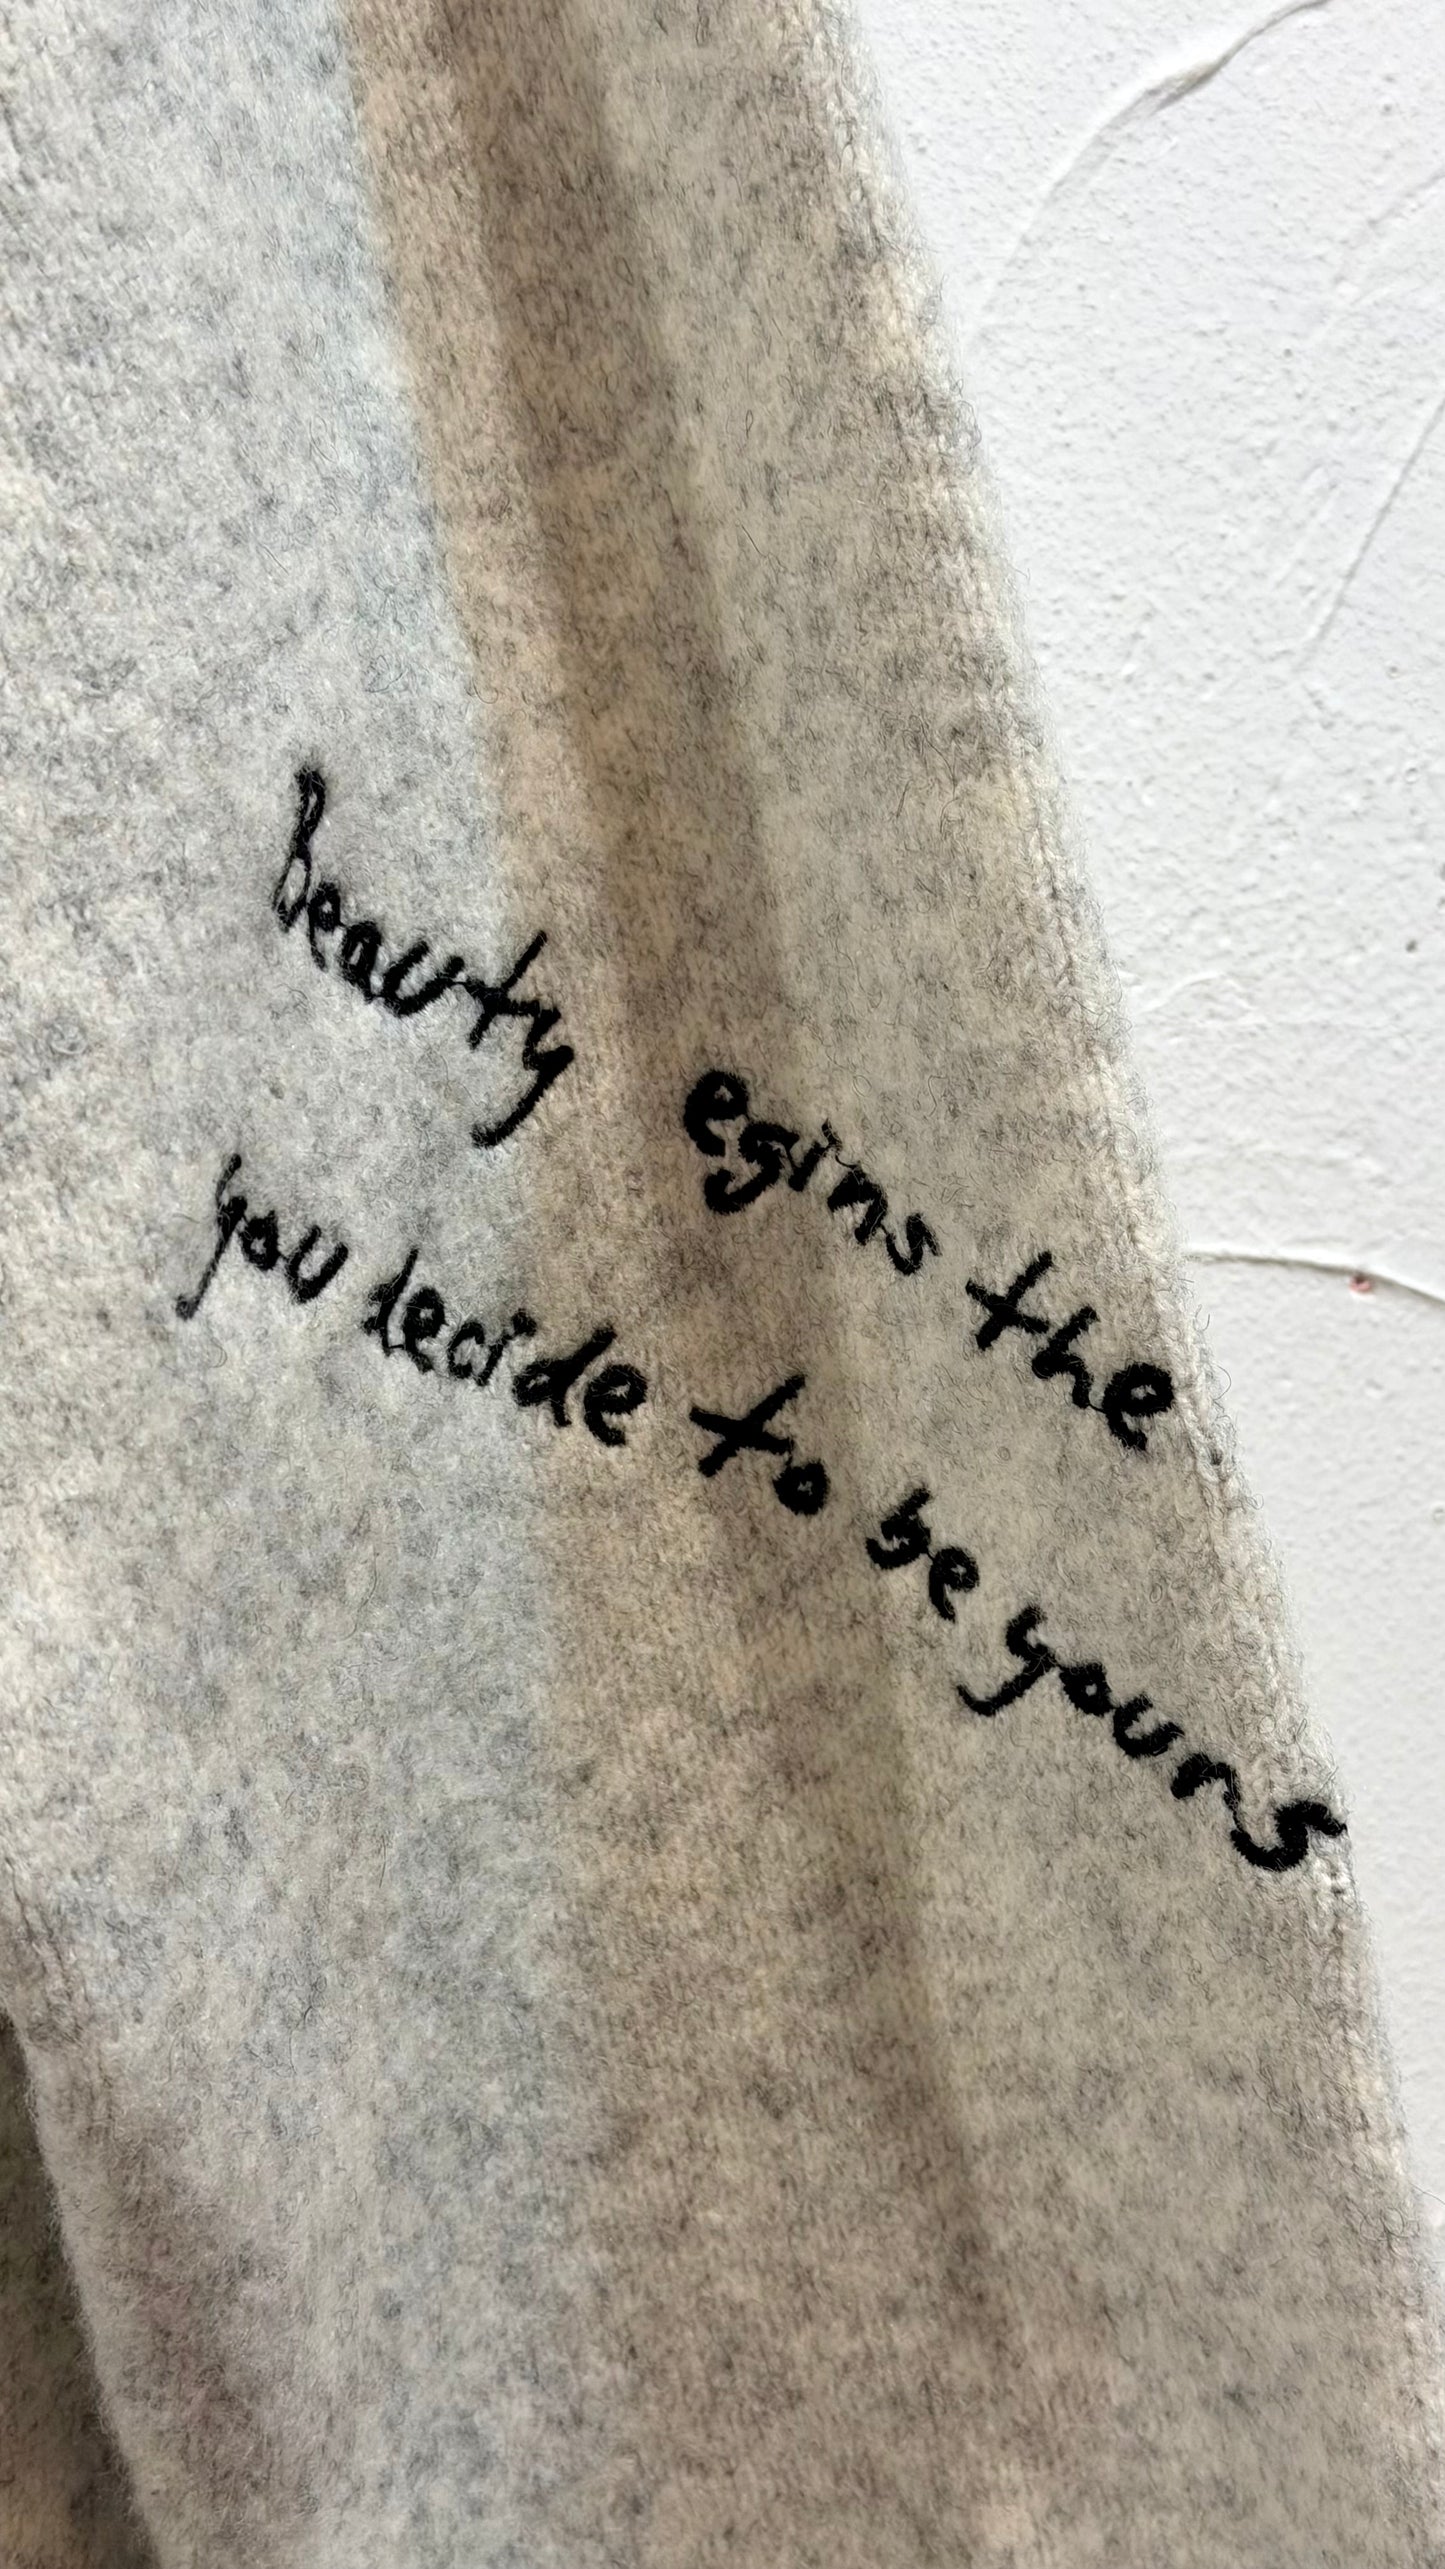 beauty egins the
you decide to be yours